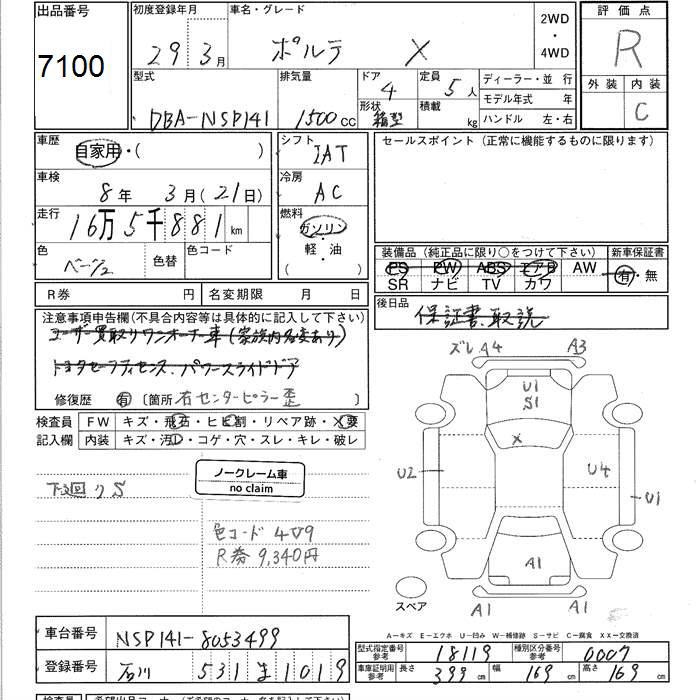 出品番号 初度登録年月 車名・グレード 2WD ・ 4WD 評価点
7100 29年3月 ポルテ X R
型式 排気量 ドア 4 定員 5人 ディーラー・並 行 外装 内装
DBA-NSP141 1500cc 形状 箱型 積載 kg モデル年式 年 C
ハンドル 左・右
車歴 自家用・( ) シフト IAT セールスポイント（正常に機能するものに限ります）
車検 8年 3月(21日) 冷房 AC
走行 16万5千881km 燃料 ガソリン
軽・油
( )
色 ベージュ 色替 色コード 装備品（純正品に限り○をつけて下さい） 新車保証書
PS PW ABS エアB AW 有・無
SR ナビ TV カワ
R券 円 名変期限 月 日 後日品
保証書、取説
注意事項申告欄(不具合内容等は具体的に記入して下さい)
ユーザー買取りワンオーナー車(家族内名変あり)
トヨタセーフティセンス、パワースライドドア
修復歴 有 〔箇所 右センターピラー歪 〕
検査員 FW キズ・飛石・ヒビ割・リペア跡・X要
記入欄 内装 キズ・汚レ・コゲ・穴・スレ・キレ・破レ
下廻りS
ノークレーム車
no claim
R券 9,340円
ズレ A4 A3
U1
S1
X
U2 U4 U1
A1
スペア A1 A1
A－キズ E－エクボ U－凹み W－補修跡 S－サビ C－腐食 XX－交換済
車台番号 NSP141-8053499
登録番号 石川 531 ま 1019
型式指定番号 参考 18119 種別区分番号 参考 0007
車庫証明用 参考 長さ 399cm 幅 169cm 高さ 169cm